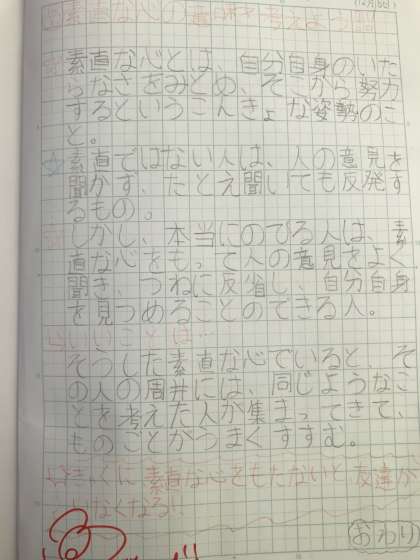 (12月6日)
素直な心の
考えよう
素直な心とは、自分自身のいた
らなさをみとめ、そこから努力
するというこんきょな姿勢のこ
と。
☆素直ではない人は、人の意見を
聞かず、たとえ聞いても反発す
るもの。
しかし、本当にのびる人は、素
直な心をもって人の意見をよく
聞き、つねに反省し、自分自身
を見つめることのできる人。
いいことは…
そうした素直な心でいると、そ
の人の周井には、同じようなこ
とを考えた人が集まってきて、
ものごとがうまくすすむ。
☆ぎゃくに素直な心をもたないと友達が
いなくなる!!
おわり